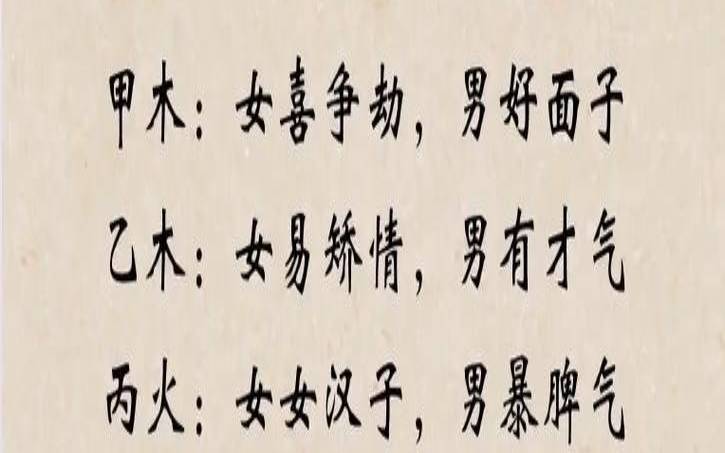 甲木：女喜争劫，男好面子
乙木：女易矫情，男有才气
丙火：女女汉子，男暴脾气